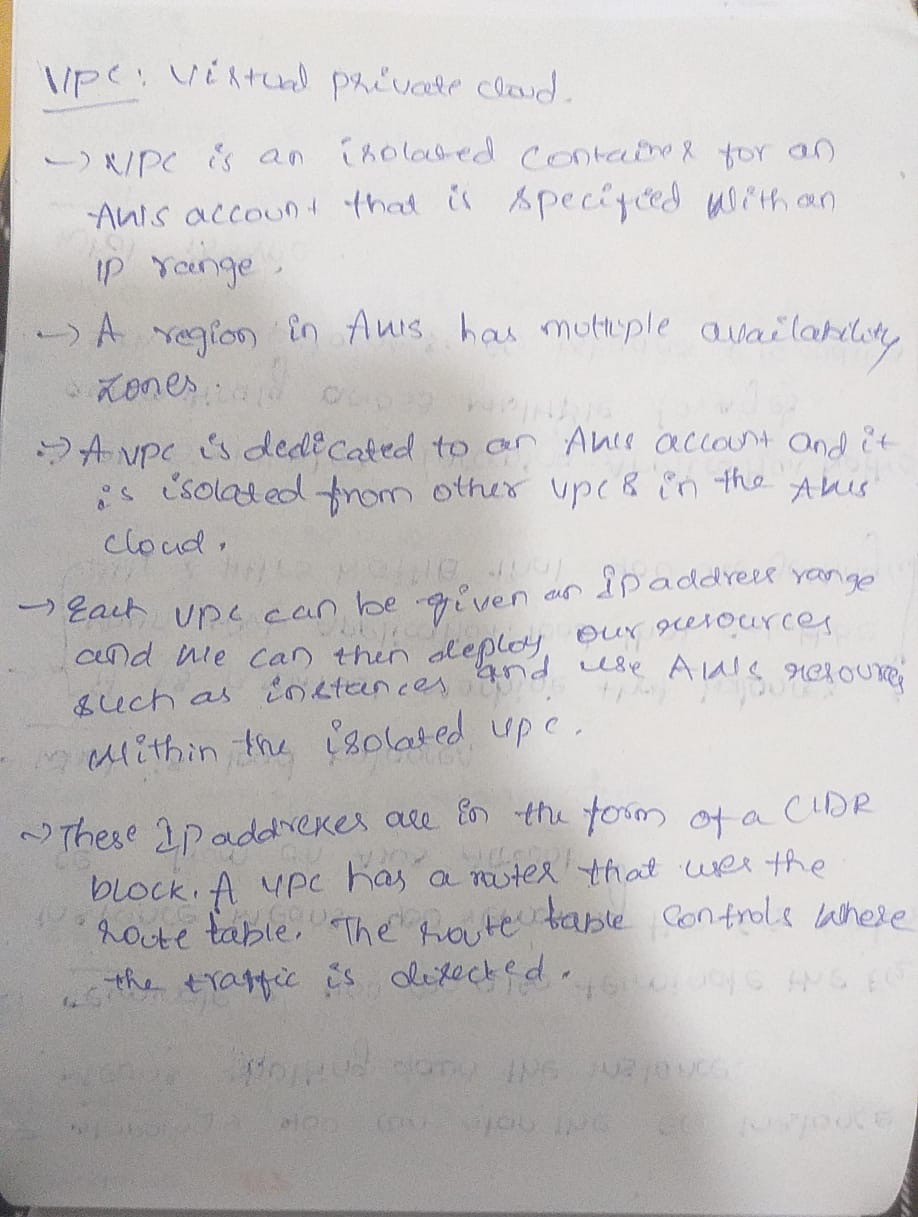 VPC: Virtual private cloud.
→ VPC is an isolated container for an
AWS account that is specified with an
IP range.
→ A region in AWS has multiple availability
zones.
→ A VPC is dedicated to an AWS account and it
is isolated from other VPCs in the AWS
cloud.
→ Each VPC can be given an IP address range
and we can then deploy our resources
such as instances and use AWS resources
within the isolated VPC.
→ These IP addresses are in the form of a CIDR
block. A VPC has a router that uses the
route table. The route table controls where
the traffic is directed.